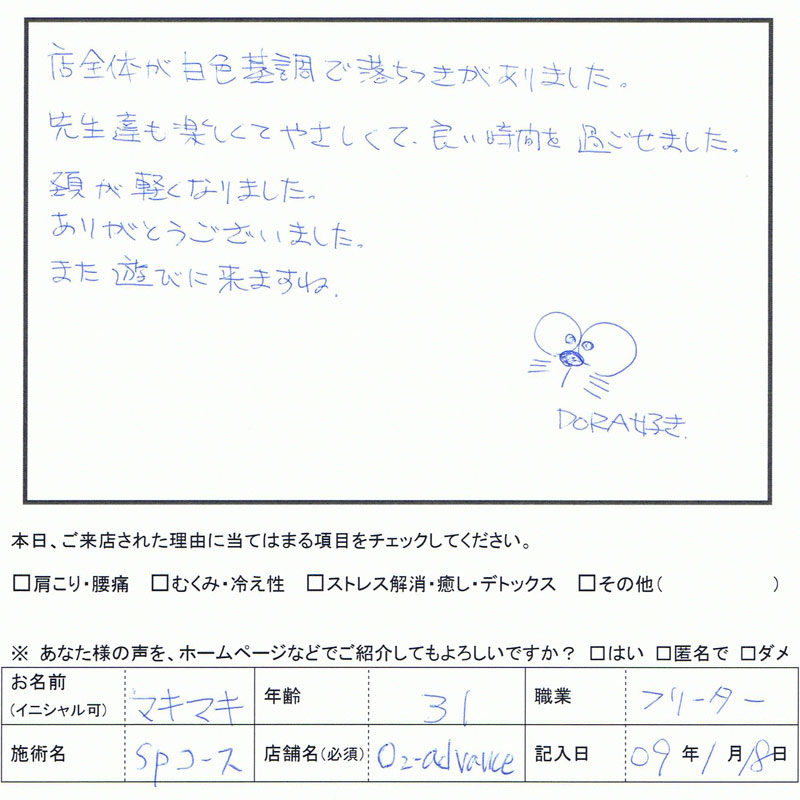 店全体が白色基調で落ちつきがありました。
先生達も楽しくてやさしくて、良い時間を過ごせました。
頚が軽くなりました。
ありがとうございました。
また遊びに来ますね。
DORA好き.
本日、ご来店された理由に当てはまる項目をチェックしてください。
□肩こり・腰痛 □むくみ・冷え性 □ストレス解消・癒し・デトックス □その他( )
※ あなた様の声を、ホームページなどでご紹介してもよろしいですか? □はい □匿名で □ダメ
お名前(イニシャル可) マキマキ 年齢 31 職業 フリーター
施術名 Spコース 店舗名(必須) O2-advance 記入日 09年1月18日